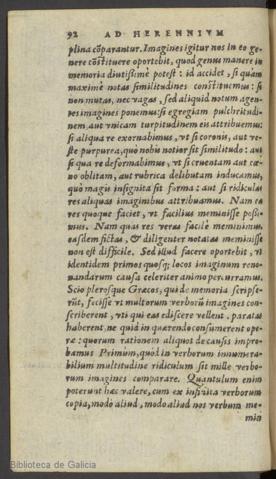 92 AD HERENNIVM
plina cōparantur. Imagines igitur nos in eo ge-
nere cōstituere oportebit, quod genus manere in
memoria diutissimè potest: id accidet, si quam
maximè notas similitudines constituemus: si
non mutas, nec vagas, sed aliquid notum agen-
tes imagines ponemus: si egregiam pulchritudi-
nem, aut vnicam turpitudinem eis attribuemus:
si aliqua re exornabimus, vt si coronis, aut ve-
ste purpurea, quò nobis notior sit similitudo: aut
si qua re deformabimus, vt si cruentam aut cœ-
no oblitam, aut rubrica delibutam inducamus,
quò magis insignita sit forma: aut si ridiculas
res aliquas imaginibus attribuamus. Nam ea
res quoque faciet, vt facilius meminisse possi-
mus. Nam quas res veras facilè meminimus,
easdem fictas, & diligenter notatas meminisse
non est difficile. Sed illud facere oportebit, vt
identidem primos quosq; locos imaginum reno-
uandarum causa celeriter animo percurramus.
Scio plerosque Græcos, qui de memoria scripse-
rūt, fecisse vt multorum verborū imagines con-
scriberent, vti qui eas ediscere vellent, paratas
haberent, ne quid in quærendo consumerent ope-
ræ: quorum rationem aliquot de causis impro-
bamus Primùm, quòd in verborum innumera-
bilium multitudine ridiculum sit mille verbo-
rum imagines comparare. Quantulum enim
poterunt hæc valere, cum ex infinita verborum
copia, modo aliud, modo aliud nos verbum me-
min
Biblioteca de Galicia